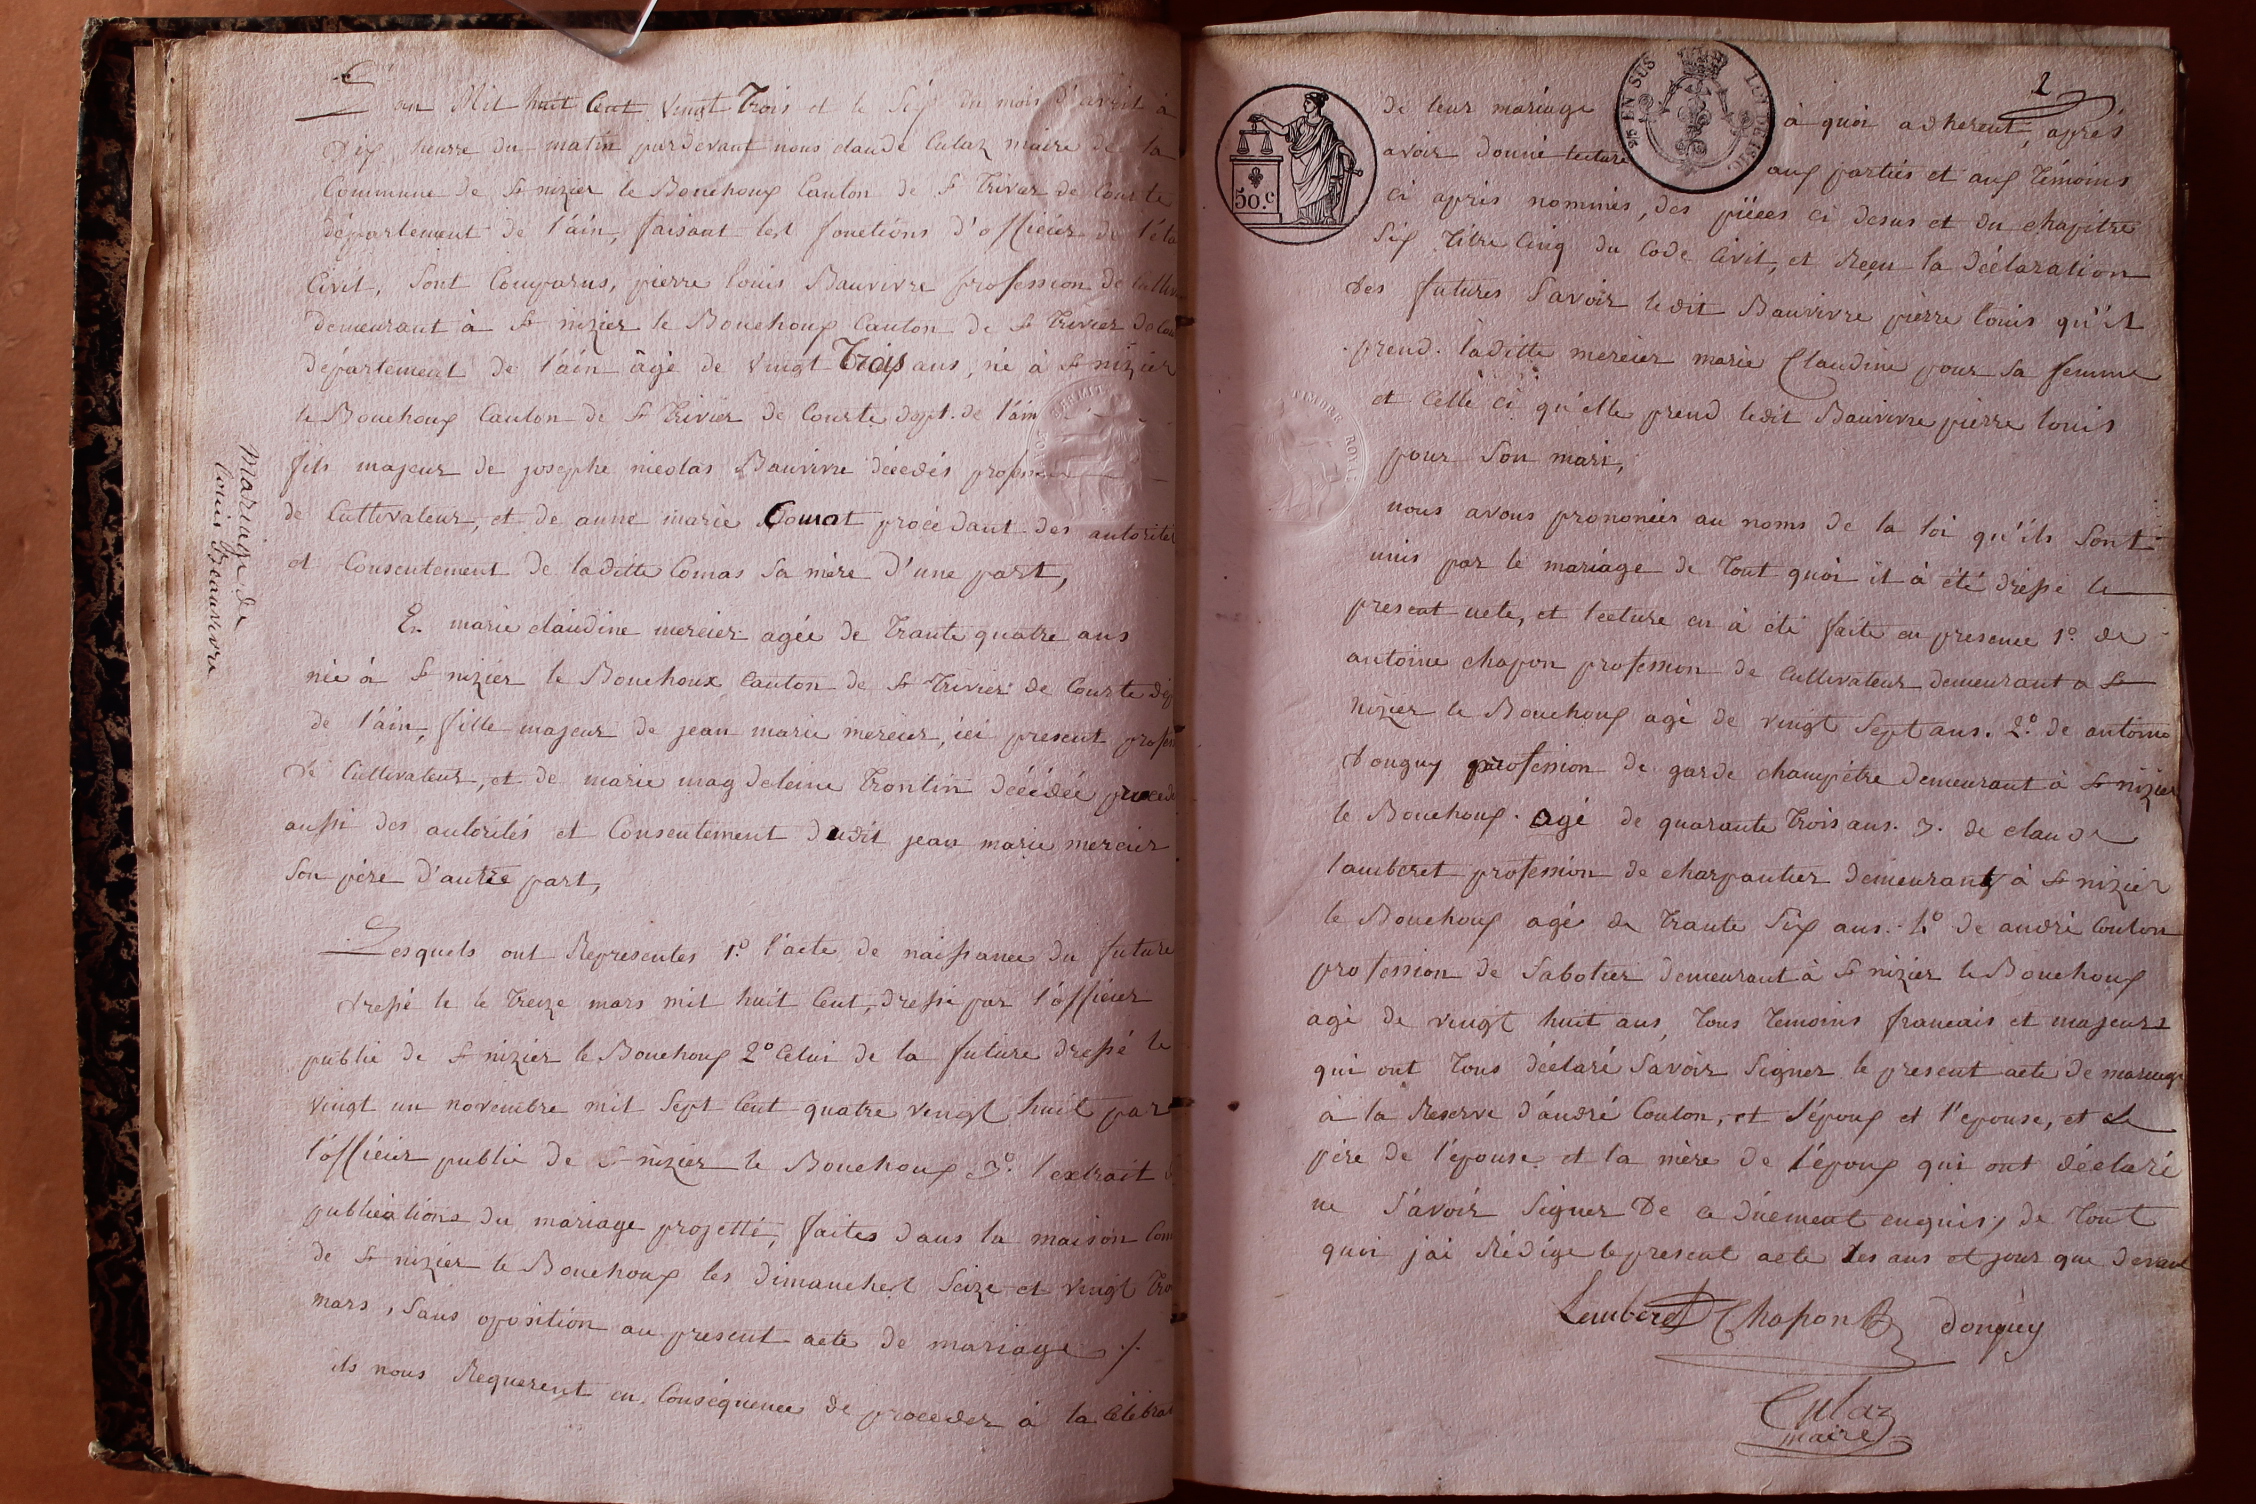 L'an Mil huit Cent vingt Trois et le Six du mois d'avril à
Dix heurre du matin pardevant nous claude Culaz maire de la
Commune de St nizier le Bouchoux Canton de St Trivier de Courte
département de l'ain, faisant les fonctions d'officier de l'éta
Civil, Sont Comparus, pierre louis Bauvivre profession de Cultiv
demeurant à St nizier le Bouchoux Canton de St Trivier de Cou
département de l'ain âgé de vingt Trois ans, né à St nizier
le Bouchoux Canton de St Trivier de Courte dept. de l'ain
fils majeur de josephe nicolas Bauvivre décedés profession
de Cultivateur, et de anne marie Comat procédant des autorités
et Consentement de laditte Comas Sa mère d'une part,
Et marie claudine mercier agée de Trante quatre ans
née à St nizier le Bouchoux Canton de St Trivier de Courte dép
de l'ain, fille majeur de jean marie mercier, ici present profess
de Cultivateur, et de marie magdeleine Trontin décédée procéd
aussi des autorités et Consentement dudit jean marie mercier
Son père d'autre part,
Lesquels ont Représentés 1.° l'acte de naissance du future
dressé le le Treize mars mil huit Cent, dressé par l'officier
public de St nizier le Bouchoux 2° Celui de la future dressé le
vingt un novembre mil Sept Cent quatre vingt huit par
l'officier public de St nizier le Bouchoux 3° l'extrait d
publications du mariage projetté, faites dans la maison Com
de St nizier le Bouchoux les dimanches Seize et vingt Troi
mars, Sans oposition au present acte de mariage ./.
ils nous Requerent en Conséquence de proceder à la Célébrat
Mariage de
louis Beauvivre
2
5.e EN SUS
LOI DE 1816
50.c
TIMBRE ROYAL
de leur mariage à quoi adherent, après
avoir donné lecture aux parties et aux Témoins
ci après nommés, des pièces ci desus et du chapitre
Six Titre Cinq du Code Civil, et Reçu la déclaration
des futures Savoir ledit Bauvivre pierre louis qu'il
prend laditte mercier marie Claudine pour Sa femme
et Celle ci qu'elle prend ledit Bauvivre pierre louis
pour Son mari,
nous avons prononcer au noms de la loi qu'ils Sont
unis par le mariage de Tout quoi il à été dressé le
present acte, et lecture en à été faite en presence 1° de
antoine chapon profession de Cultivateur demeurant a St
nizier le Bouchoux agé de vingt Sept ans. 2.° de antoine
donguy profession de garde champêtre demeurant à St nizier
le Bouchoux. agé de quarante Trois ans. 3. de claude
lamberet profession de charpantier demeurant à St nizier
le Bouchoux agé de Trante Six ans. 4° de andré Coulon
profession de Sabotier demeurant à St nizier le Bouchoux
agé de vingt huit ans, Tous Temoins francais et majeurs
qui ont Tous déclaré Savoir Signer le present acte de mariage
à la Reserve d'andré Coulon, et l'époux et l'epouse, et Le
père de l'épouse et la mère de l'époux qui ont déclaré
ne Savoir Signer De ce duement enquis, de Tout
quoi j'ai Rédigé le present acte Les ans et jour que devant
Lamberet Chapon donguy
Culaz
maire